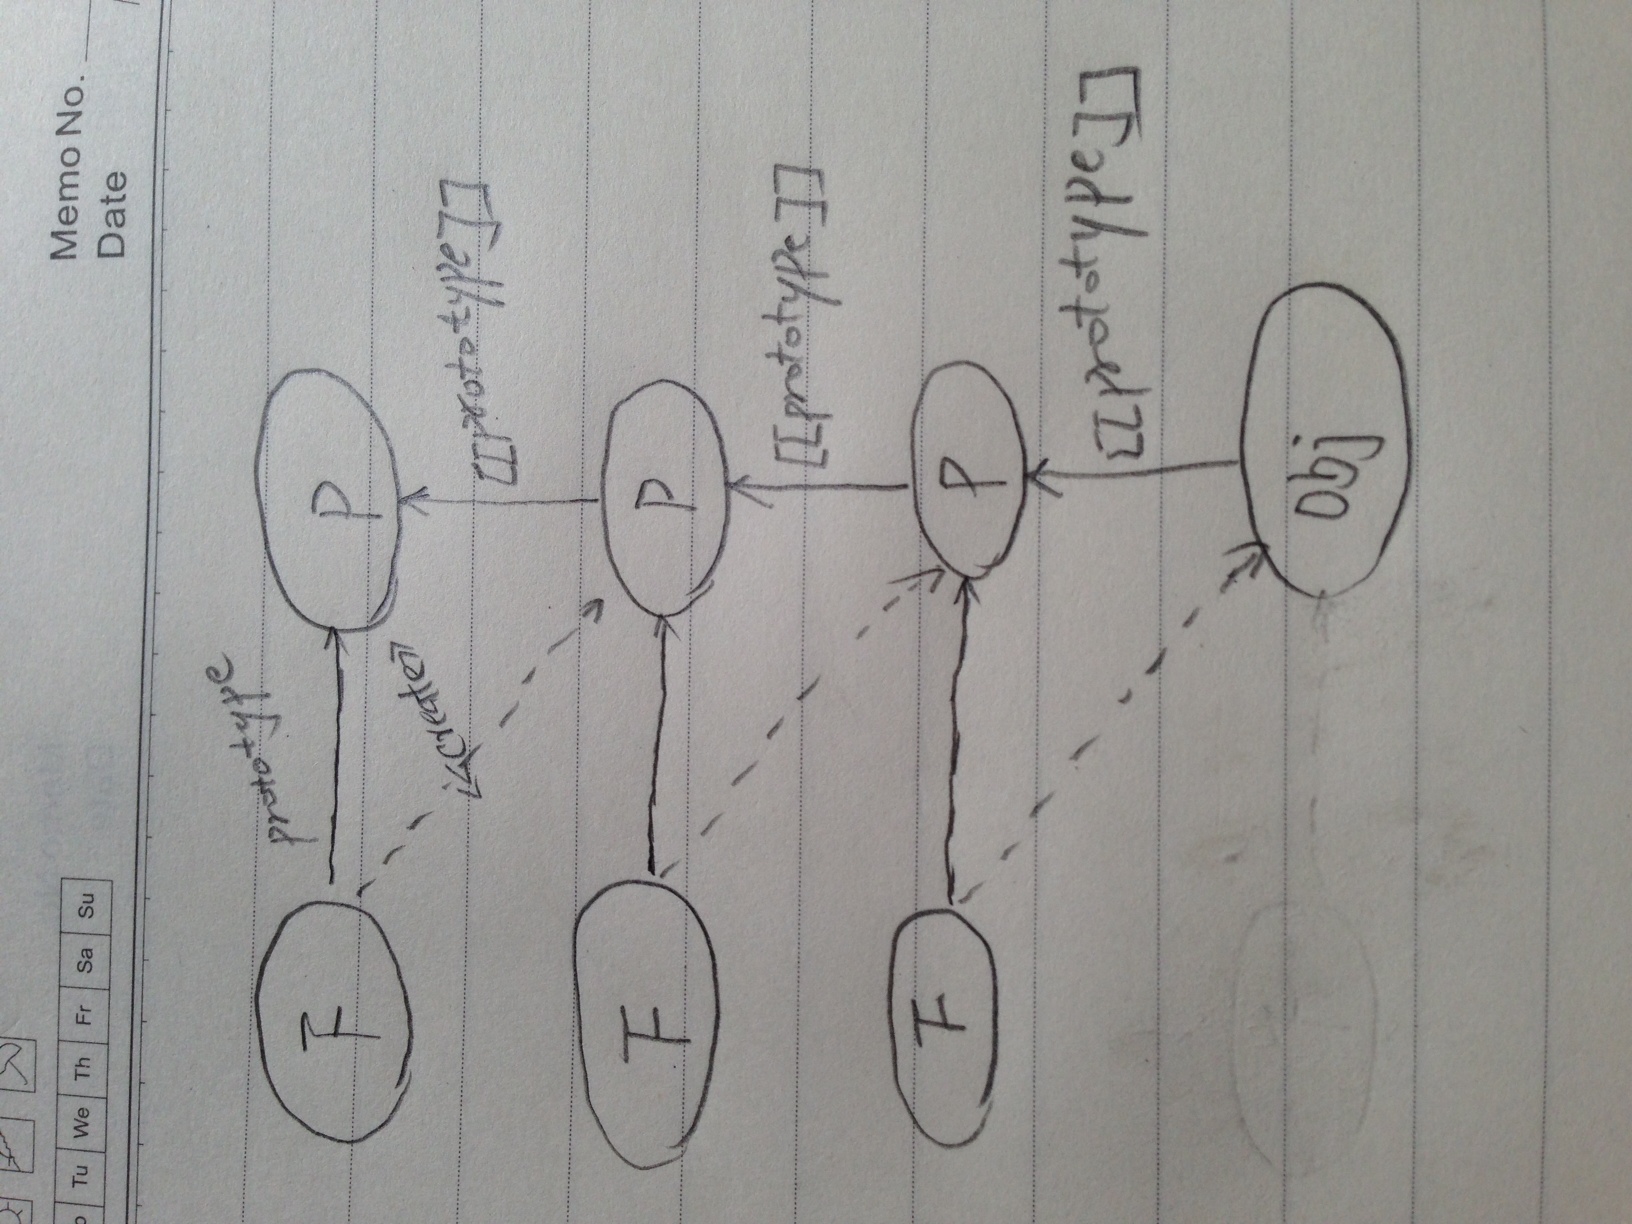 Tu We Th Fr Sa Su
Memo No.
Date
prototype
F
P
<<create>>
[[prototype]]
F
P
[[prototype]]
F
P
[[prototype]]
Obj